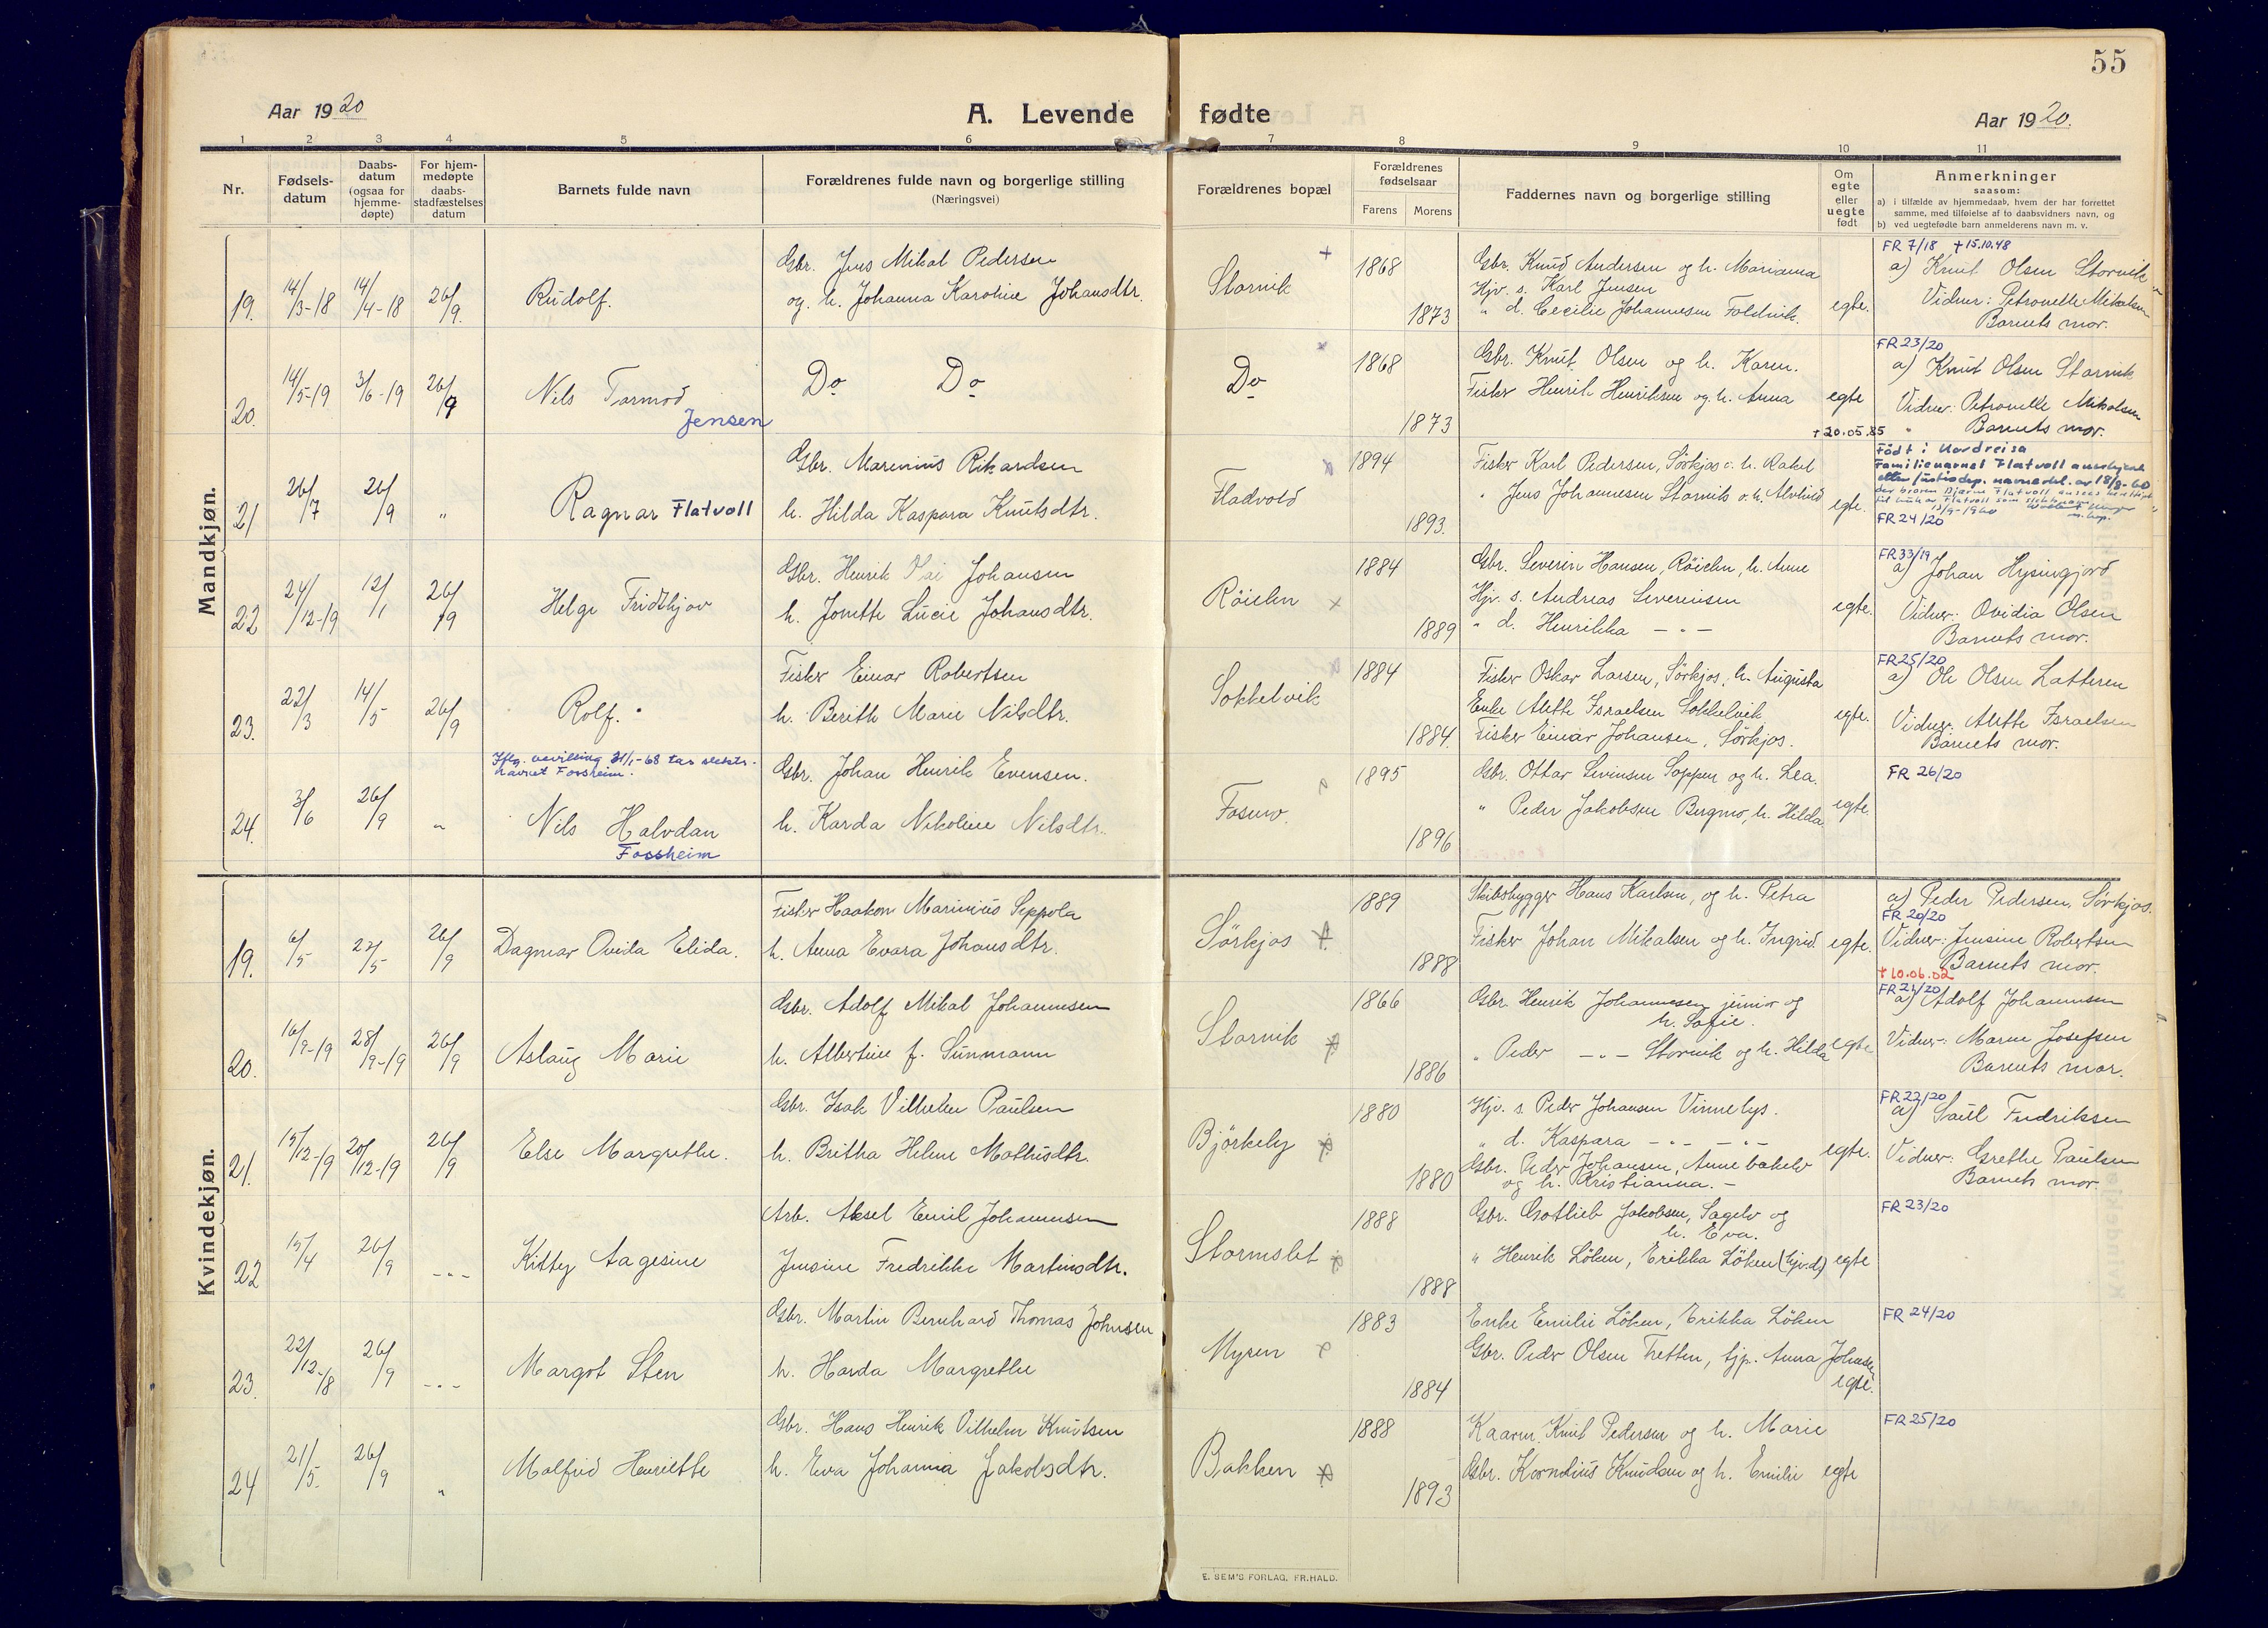 55
Aar 1920
A. Levende fødte
Aar 1920.
1 2 3 4 5 6 7 8 9 10 11
Nr.
Fødsels-
datum
Daabs-
datum
(ogsaa for
hjemme-
døpte)
For hjem-
medøpte
daabs-
stadfæstelses
datum
Barnets fulde navn
Forældrenes fulde navn og borgerlige stilling
(Næringsvei)
Forældrenes bopæl
Forældrenes
fødselsaar
Farens Morens
Faddernes navn og borgerlige stilling
Om
egte
eller
uegte
født
Anmerkninger
saasom:
a) i tilfælde av hjemmedaab, hvem der har forrettet
samme, med tilføielse af to daabsvidners navn, og
b) ved uegtefødte barn anmelderens navn m. v.
Mandkjøn.
19. 14/3-18 14/4-18 26/9. Rudolf.
Gbr. Jens Mikal Pedersen
og h. Johanna Karoline Johansdtr.
Storvik + 1868 1873
Gbr. Knud Andersen og h. Marianna
Hjv. s. Karl Jensen
" d. Cecilie Johannesen Foldvik.
egte.
FR 7/18 +15.10.48
a) Knut Olsen Storvik
Vidner: Petronelle Mikalsen
Barnets mor.
20. 14/5-19 3/6-19 26/9 Nils Tormod
Jensen
Do Do
Do 1868 1873
Gbr. Knut Olsen og h. Karen.
Fisker Henrik Henriksen og h. Anna
egte
FR 23/20
a) Knut Olsen Storvik
Vidner: Petronelle Mikalsen
" Barnets mor.
+20.05.85
21 26/7 26/9 " Ragnar Flatvoll
Gbr. Marenius Rikardsen
h. Hilda Kaspara Knutsdtr.
Fladvold 1894 1893.
Fisker Karl Pedersen, Sørkjos o. h. Rakel
" Jens Johannesen Storvik o. h. Alvhild
egte.
Født i Nordreisa
Familienavnet Flatvoll
etter justisdep. navneavd. av 18/8-60
FR 24/20
22 24/12-19 12/1 26/9 Helge Fridthjov
Gbr. Henrik Kai Johansen
h. Jonette Lucie Johansdtr.
Röielen x 1884 1889
Gbr. Severin Hansen, Röielen, h. Anne
Hjv. s. Andreas Severinsen
" d. Henrikka – " –
egte.
FR 33/19
a) Johan Hysingjord
Vidner: Ovidia Olsen
Barnets mor.
23. 22/3 14/5 26/9 Rolf.
Fisker Einar Robertsen
h. Berith Marie Nilsdtr.
Sokkelvik 1884 1884.
Fisker Oskar Larsen, Sörkjos, h. Augusta
Enke Alette Israelsen Sokkelvik
Fisker Einar Johansen, Sörkjos.
egte.
FR 25/20
a) Ole Olsen Latteren
Vidner: Alette Israelsen
Barnets mor.
24. 3/6 26/9 "
Iflg. bevilling 31/1-68 tas slekts-
navnet Fossheim.
Nils Halvdan
Fossheim
Gbr. Johan Henrik Evensen.
h. Karda Nikoline Nilsdtr.
Fosmo. 1895 1896
Gbr. Ottar Sevinsen Soppen og h. Lea.
" Peder Jakobsen Bergmo, h. Hilda
egte.
FR 26/20
Kvindekjøn.
19. 6/5 27/5 26/9 Dagmar Ovida Elida.
Fisker Haakon Marinius Seppola
h. Anna Evara Johansdtr.
Sörkjos 1889 1888
Skibsbygger Hans Karlsen, og h. Petra
Fisker Johan Mikalsen og h. Ingrid
egte.
a) Peder Pedersen, Sörkjos.
FR 20/20
Vidner: Jensine Robertsen
Barnets mor.
+10.06.02
20. 16/9-19 28/9-19 26/9 Aslaug Marie
Gbr. Adolf Mikal Johannesen
h. Albertine f. Sunmann
Storvik 1866 1886
Gbr. Henrik Johannesen junior og
h. Sofie.
" Peder – " – Storvik og h. Hilda
egte
FR 21/20
a) Adolf Johannesen
Vidner: Maren Josefsen
Barnets mor.
21. 15/12-19 20/12-19 26/9 Else Margrethe.
Gbr. Isak Vilhelm Paulsen
h. Britha Helene Mathisdtr.
Björkely 1880 1880
Hjv. s. Peder Johansen Vinnelys.
" d. Kaspara – " – – " –
Gbr. Peder Johansen, Annebakelv
og h. Kristianna. –
egte.
FR 22/20
a) Saul Fredriksen
Vidner: Grethe Paulsen
Barnets mor.
22 15/4 26/9 – " – Kitty Aagesine
Arb. Aksel Emil Johannesen
Jensine Fredrikke Martinsdtr.
Storslet 1888 1888
Gbr. Gotlieb Jakobsen, Sagelv og
h. Eva.
" Henrik Löken, Erikka Löken (hjv.d.)
egte
FR 23/20
23. 22/12-18 26/9 – " – Margot Sten
Gbr. Martin Bernhard Thomas Johnsen
h. Harda Margrethe
Myren 1883 1884
Enke Emilie Löken, Erikka Löken
Gbr. Peder Olsen Tretten, tjp. Anna Johnsen
egte.
FR 24/20
24 21/5. 26/9 " Malfrid Henriette
Gbr. Hans Henrik Vilhelm Knutsen
h. Eva Johanna Jakobsdtr.
Bakken 1888 1893
Kaarm. Knut Pedersen og h. Marie
Gbr. Kornelius Knudsen og h. Emilie
egte
FR 25/20
E. SEM'S FORLAG, FR.HALD.